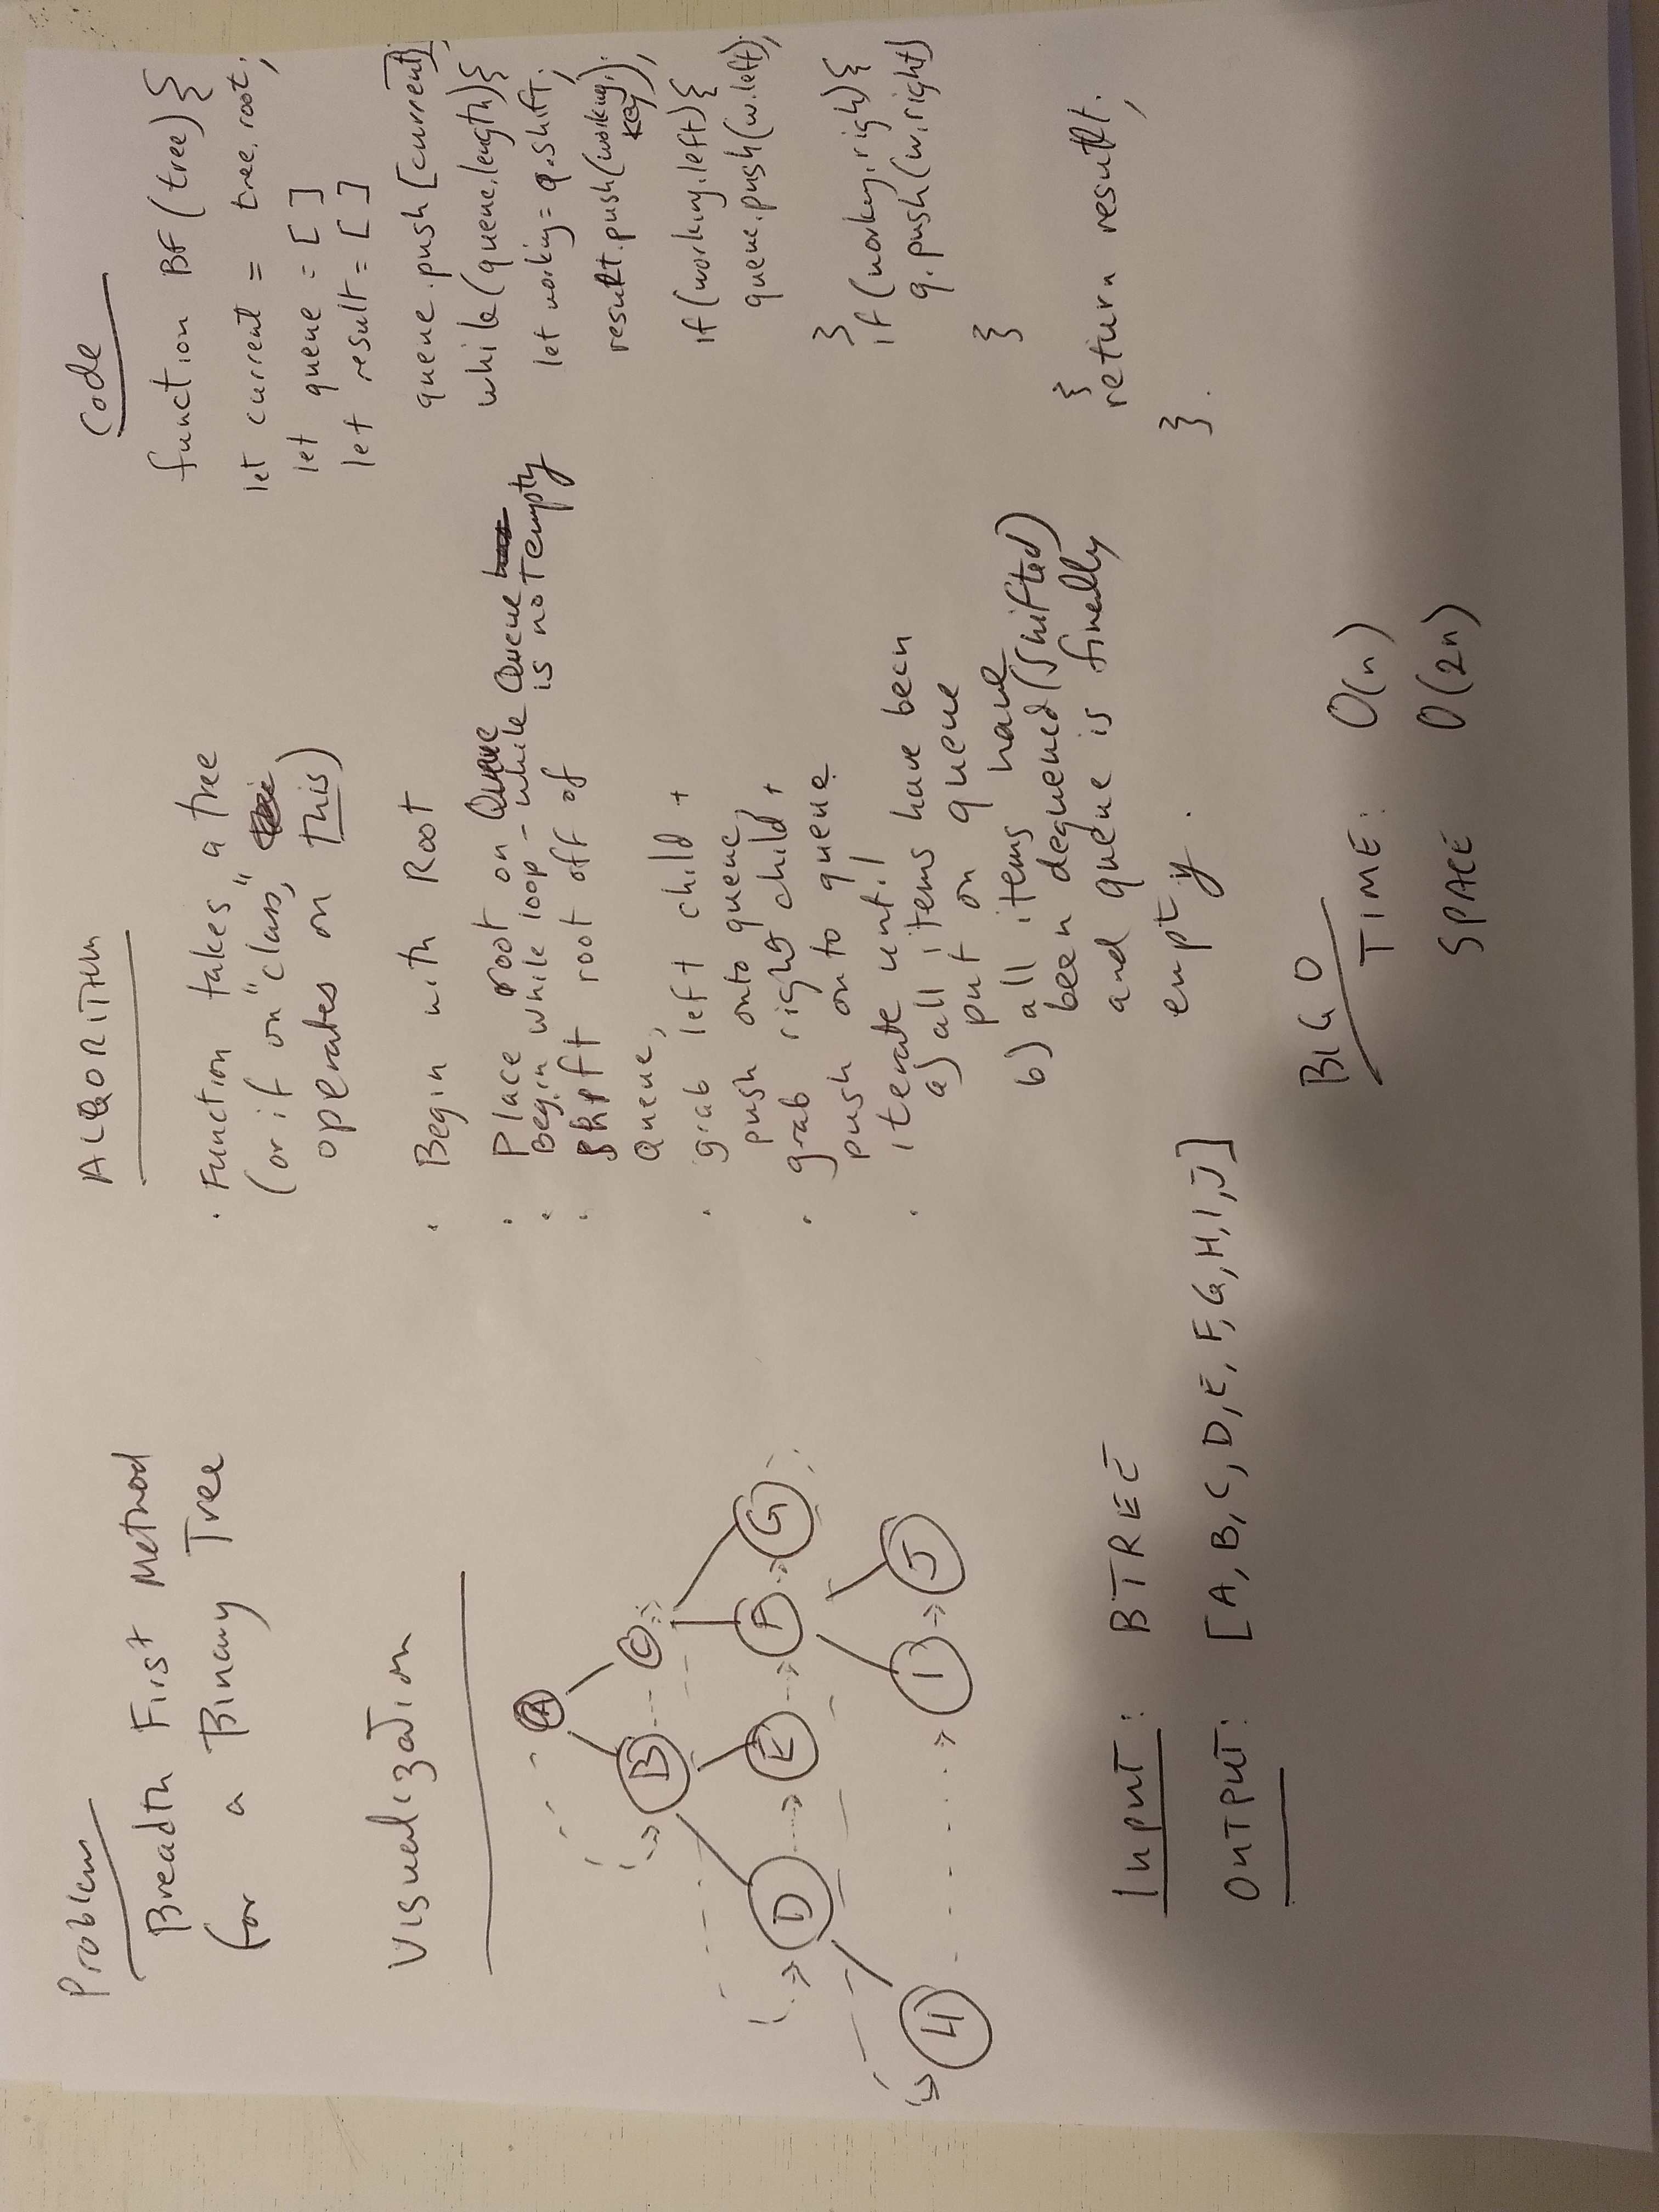 Problem
Breadth First Method
for a Binary Tree
Visualization
A
B
C
D
E
F
G
H
I
J
Input: BTREE
OUTPUT: [A, B, C, D, E, F, G, H, I, J]
ALGORITHM
. Function takes a tree
(or if on "class,"
operates on this)
. Begin with Root
. Place root on Queue
. Begin while loop - while Queue is not empty
. shift root off of
Queue,
. grab left child +
push onto queue,
. grab right child +
push onto queue
. iterate until
a) all items have been
put on queue
b) all items have
been dequeued (shifted)
and queue is finally
empty.
BIG O
TIME: O(n)
SPACE O(2n)
Code
function BF (tree) {
let current = tree.root;
let queue = [ ]
let result = [ ]
queue.push [current];
while (queue.length) {
let working = q.shift;
result.push(working.
key);
if (working.left) {
queue.push (w.left);
}
if (working.righ) {
q.push (w.right)
}
}
return result;
}.